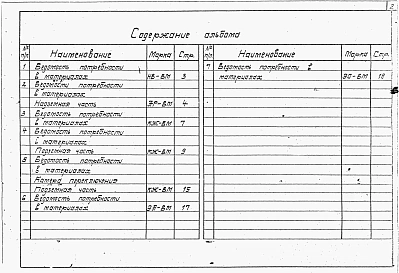 2
Содержание альбома
№ п/п Наименование Марка Стр.
1 Ведомость потребности
в материалах НВ-ВМ 3
2 Ведомости потребности
в материалах
Надземная часть ЭР-ВМ 4
3 Ведомость потребности
в материалах КЖ-ВМ 7
4 Ведомость потребности
в материалах
Подземная часть КЖ-ВМ 9
5 Ведомость потребности
в материалах
Камера переключения
Подземная часть КЖ-ВМ 15
6 Ведомость потребности
в материалах ЭВ-ВМ 17
№ п/п Наименование Марка Стр.
7 Ведомость потребности в
материалах ЭО-ВМ 18